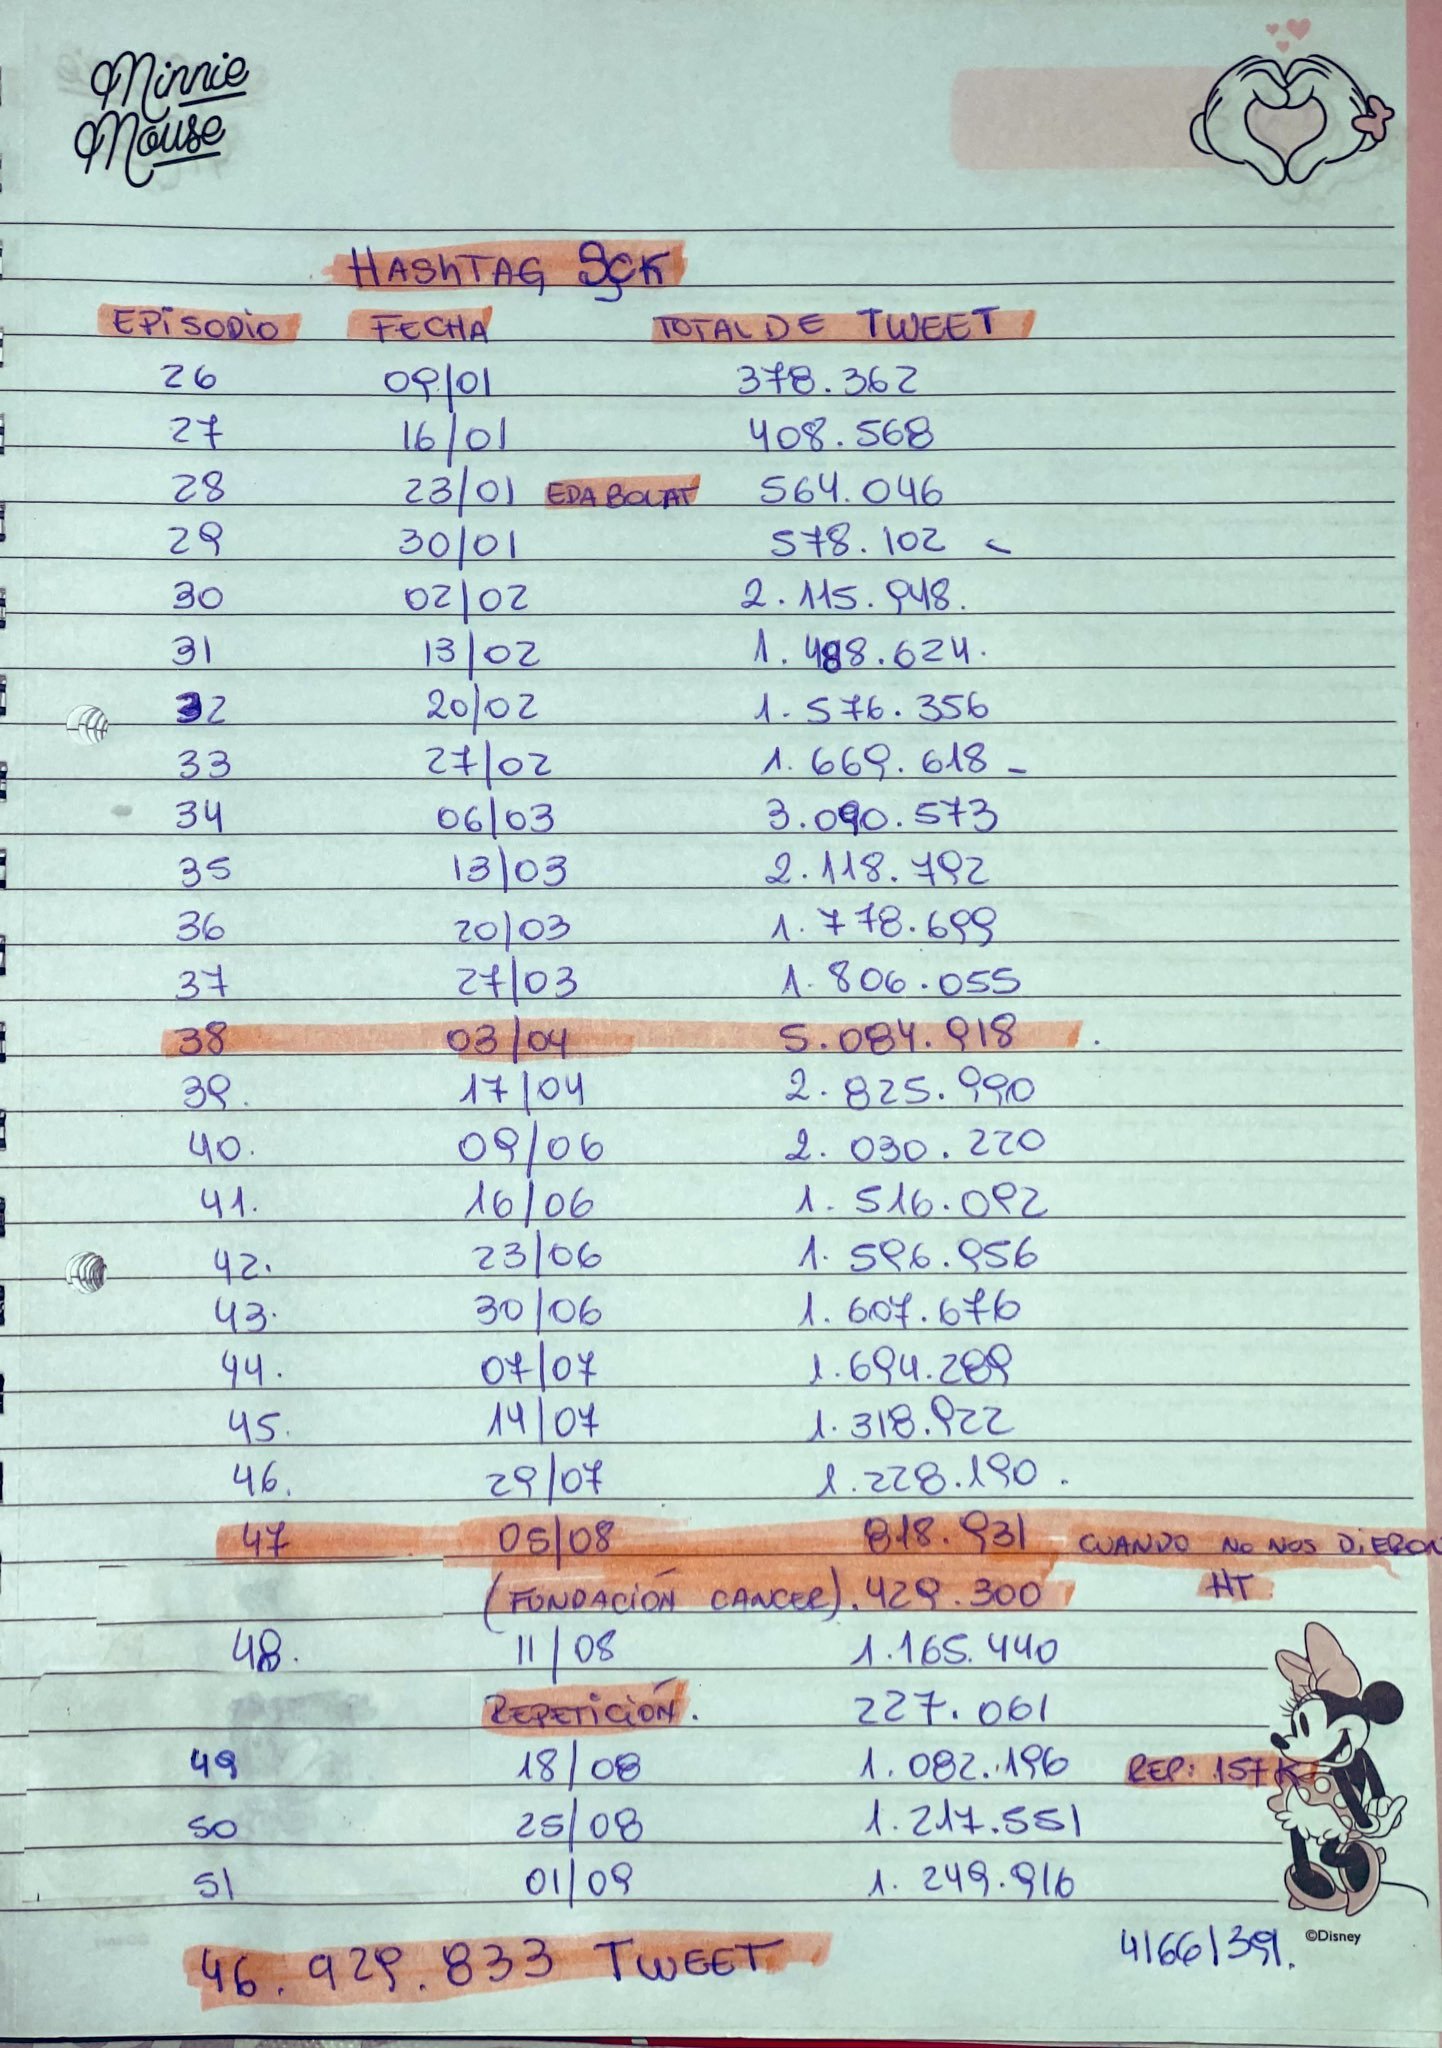 Minnie
Mouse
HASHTAG SÇK
EPISODIO FECHA TOTAL DE TWEET
26 09/01 378.362
27 16/01 408.568
28 23/01 EDA BOLAT 564.046
29 30/01 578.102
30 02/02 2.115.948.
31 13/02 1.488.624.
32 20/02 1.576.356
33 27/02 1.669.618 -
34 06/03 3.090.573
35 13/03 2.118.792
36 20/03 1.778.699
37 27/03 1.806.055
38 03/04 5.084.918 .
39. 17/04 2.825.990
40. 09/06 2.030.220
41. 16/06 1.516.092
42. 23/06 1.596.956
43. 30/06 1.607.676
44. 07/07 1.694.289
45. 14/07 1.318.922
46. 29/07 1.228.190.
47 05/08 818.931 CUANDO NO NOS DIERON
(FUNDACIÓN CANCER). 429.300 HT
48. 11/08 1.165.440
REPETICIÓN. 227.061
49 18/08 1.082.196 REP: 157K
50 25/08 1.217.551
51 01/09 1.249.916
©Disney
46.929.833 TWEET 41661391.